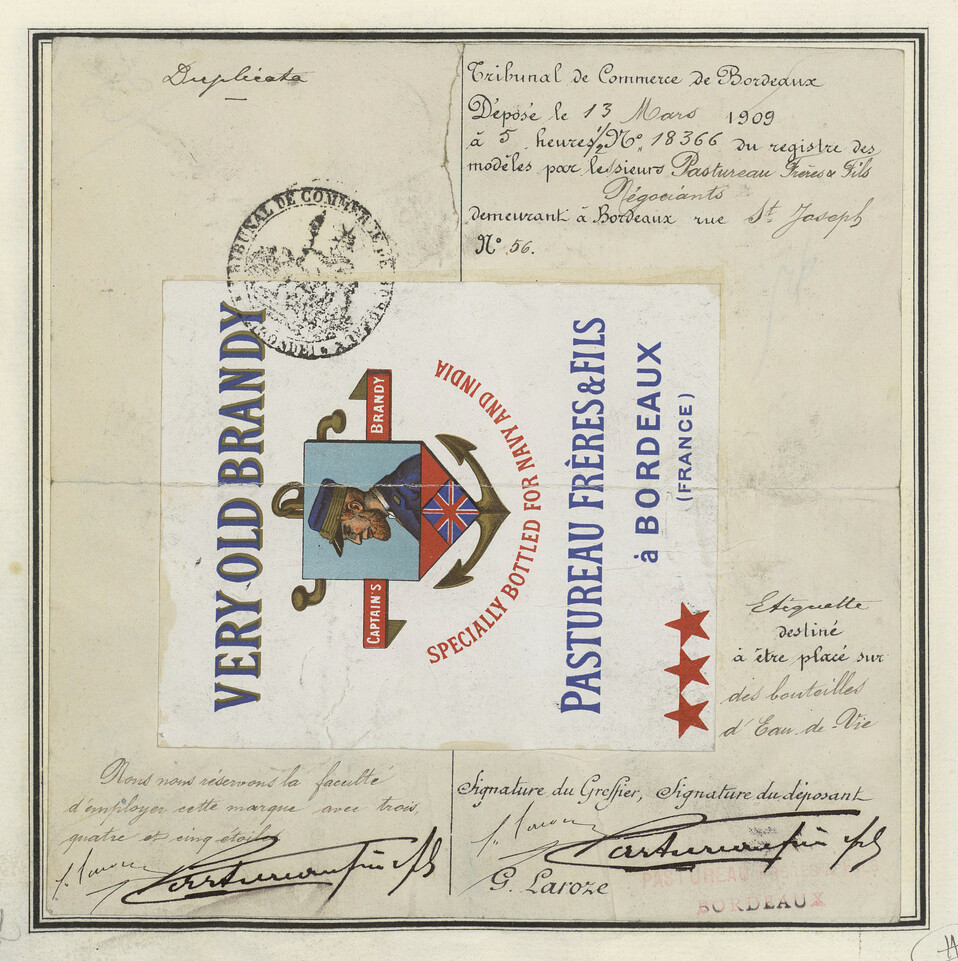 Duplicata
Tribunal de Commerce de Bordeaux
Déposé le 13 Mars 1909
à 5 heures 1/2 N° 18366 du registre des
modèles par lessieurs Pastureau Frères & Fils
Négociants
demeurant à Bordeaux rue St Joseph
N° 56.
TRIBUNAL DE COMMERCE DE
VERY OLD BRANDY
CAPTAIN'S BRANDY
SPECIALLY BOTTLED FOR NAVY AND INDIA
PASTUREAU FRÈRES & FILS
à BORDEAUX
(FRANCE)
Etiquette
destiné
à être placé sur
des bouteilles
d'Eau-de-Vie
Nous nous réservons la faculté
d'employer cette marque avec trois,
quatre et cinq étoiles
Signature du Greffier, Signature du déposant
G. Laroze
PASTUREAU
BORDEAUX